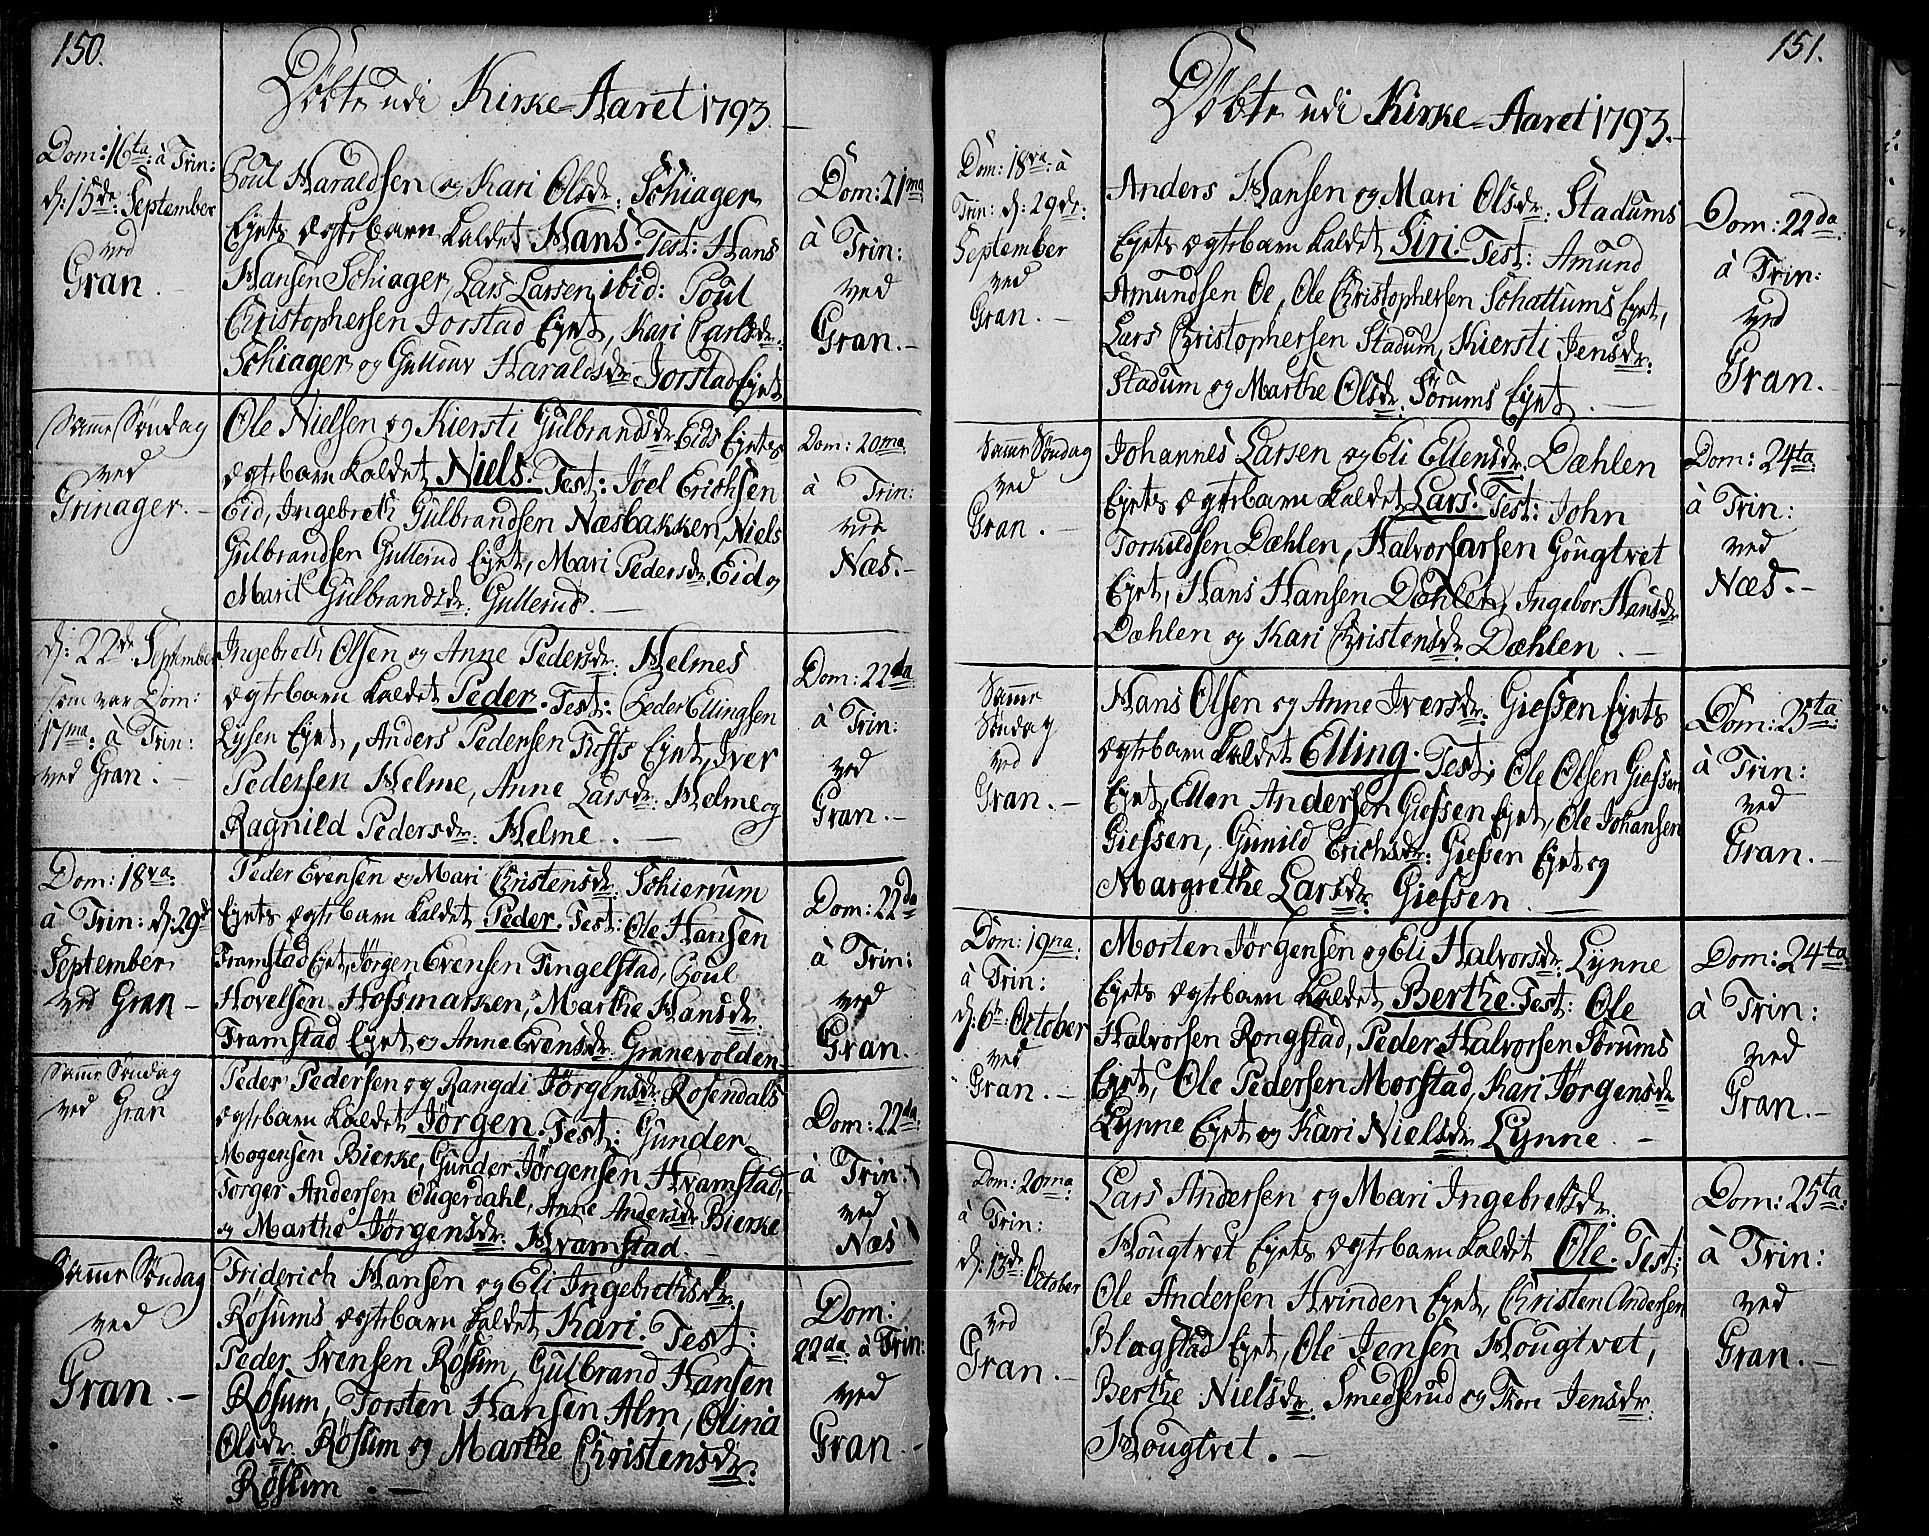 150.
Döbte udi Kirke-Aaret 1793.
Dom: 16ta: à Trin:
d: 15de September
ved
Gran.
Poul Haraldsen og Kari Olsdr: Schiager
Eyets ægtebarn kaldet Hans. Test: Hans
Hansen Schiager, Lars Larsen ibid: Poul
Christophersen Jorstad Eyet, Kari Carlsdr:
Schiager og Gullour Haraldsdr Jorstad Eyet
Dom: 21ma
à Trin:
ved
Gran.
Samme Søndag
ved
Grinager.
Ole Nielsen og Kiersti Gulbrandsdr Eids Eyets
ægtebarn kaldet Niels. Test: Joel Erichsen
Eid, Ingebreth Gulbrandsen Næsbakken, Niels
Gulbrandsen Gullerud Eyet, Mari Pedersdr Eid og
Marit Gulbrandsdr: Gullerud.
Dom: 20ma
à Trin:
ved
Næs.
d: 22de September
som var Dom:
17ma: à Trin:
ved Gran.
Ingebreth Olsen og Anne Pedersdr: Helmes
ægtebarn kaldet Peder. Test: Peder Ellingsen
Lysen Eyet, Anders Pedersen Toffs Eyet, Iver
Pedersen Helme, Anne Larsdr: Helme og
Ragnild Pedersdr: Helme.
Dom: 22da
à Trin:
ved
Gran.
Dom: 18va:
à Trin: d: 29de
September
ved Gran
Peder Evensen og Mari Christensdr: Schierrum
Eyets ægtebarn kaldet Peder. Test: Ole Hansen
Framstad Eyet, Jörgen Evensen Tingelstad, Poul
Hovelsen Hofsmarken, Marthe Hansdr:
Framstad Eyet og Anne Evensdr Granevolden
Dom: 22da
à Trin:
ved
Gran.
Samme Søndag
ved Gran
Peder Pedersen og Rangdi Jörgensdr: Rosendals
ægtebarn kaldet Jörgen. Test: Gunder
Mogensen Bierke, Gunder Jörgensen Hvamstad,
Torger Andersen Ougerdahl, Anne Andersdr Bierke
og Marthe Jörgensdr: Hvamstad.
Dom: 22da
à Trin:
ved
Næs
Samme Søndag
ved
Gran.
Friderich Hansen og Eli Ingebrethsdr
Rösums ægtebarn kaldet Kari. Test:
Peder Svensen Rösum, Gulbrand Hansen
Rösum, Torsten Hansen Alm, Olina
Olsdr Rösum og Marthe Christensdr:
Rösum.
Dom:
22da à Trin:
ved
Gran.
151.
Döbte udi Kirke-Aaret 1793.
Dom: 18va: à
Trin: d: 29de:
September
ved
Gran.
Anders Hansen og Mari Olsdr: Stadums
Eyets ægtebarn kaldet Siri. Test: Amund
Amundsen Oe, Ole Christophersen Schattums Eyet,
Lars Christophersen Stadum, Kiersti Jensdr:
Stadum og Marthe Olsdr: Sörums Eyet.
Dom: 22da
à Trin:
ved
Gran.
Samme Søndag
ved
Gran.
Johannes Larsen og Eli Ellensdr Dæhlen
Eyets ægtebarn kaldet Lars. Test: John
Torkildsen Dæhlen, Halvor Larsen Gougtvet
Eyet, Hans Hansen Dæhlen, Ingebor Hansdr
Dæhlen og Kari Christensdr: Dæhlen.
Dom: 24ta:
à Trin:
ved
Næs.
Samme
Søndag
ved
Gran.
Hans Olsen og Anne Iversdr: Giefsen Eyets
ægtebarn kaldet Elling. Test: Ole Olsen Giefsen
Eyet, Ellen Andersen Giefsen Eyet, Ole Johansen
Giefsen, Gunild Erichsdr: Giefsen Eyet og
Margrethe Larsdr: Giefsen.
Dom: 25ta:
à Trin:
ved
Gran.
Dom: 19na:
à Trin:
d: 6te October
ved
Gran.
Morten Jörgensen og Eli Halvorsdr: Lynne
Eyets ægtebarn kaldet Berthe. Test: Ole
Halvorsen Rongstad, Peder Halvorsen Sörums
Eyet, Ole Pedersen Morstad, Kari Jörgensdr
Lynne Eyet og Kari Nielsdr Lynne.
Dom: 24ta
à Trin:
ved
Gran.
Dom: 20ma:
à Trin:
d: 13de October
ved
Gran.
Lars Andersen og Mari Ingebretsdr
Hougtvet Eyets ægtebarn kaldet Ole. Test:
Ole Andersen Hvinden Eyet, Christen Andersen
Blagstad Eyet, Ole Jensen Hougtvet,
Berthe Nielsdr: Smedserud og Thore Jensdr:
Hougtvet.
Dom: 25ta:
à Trin:
ved
Gran.